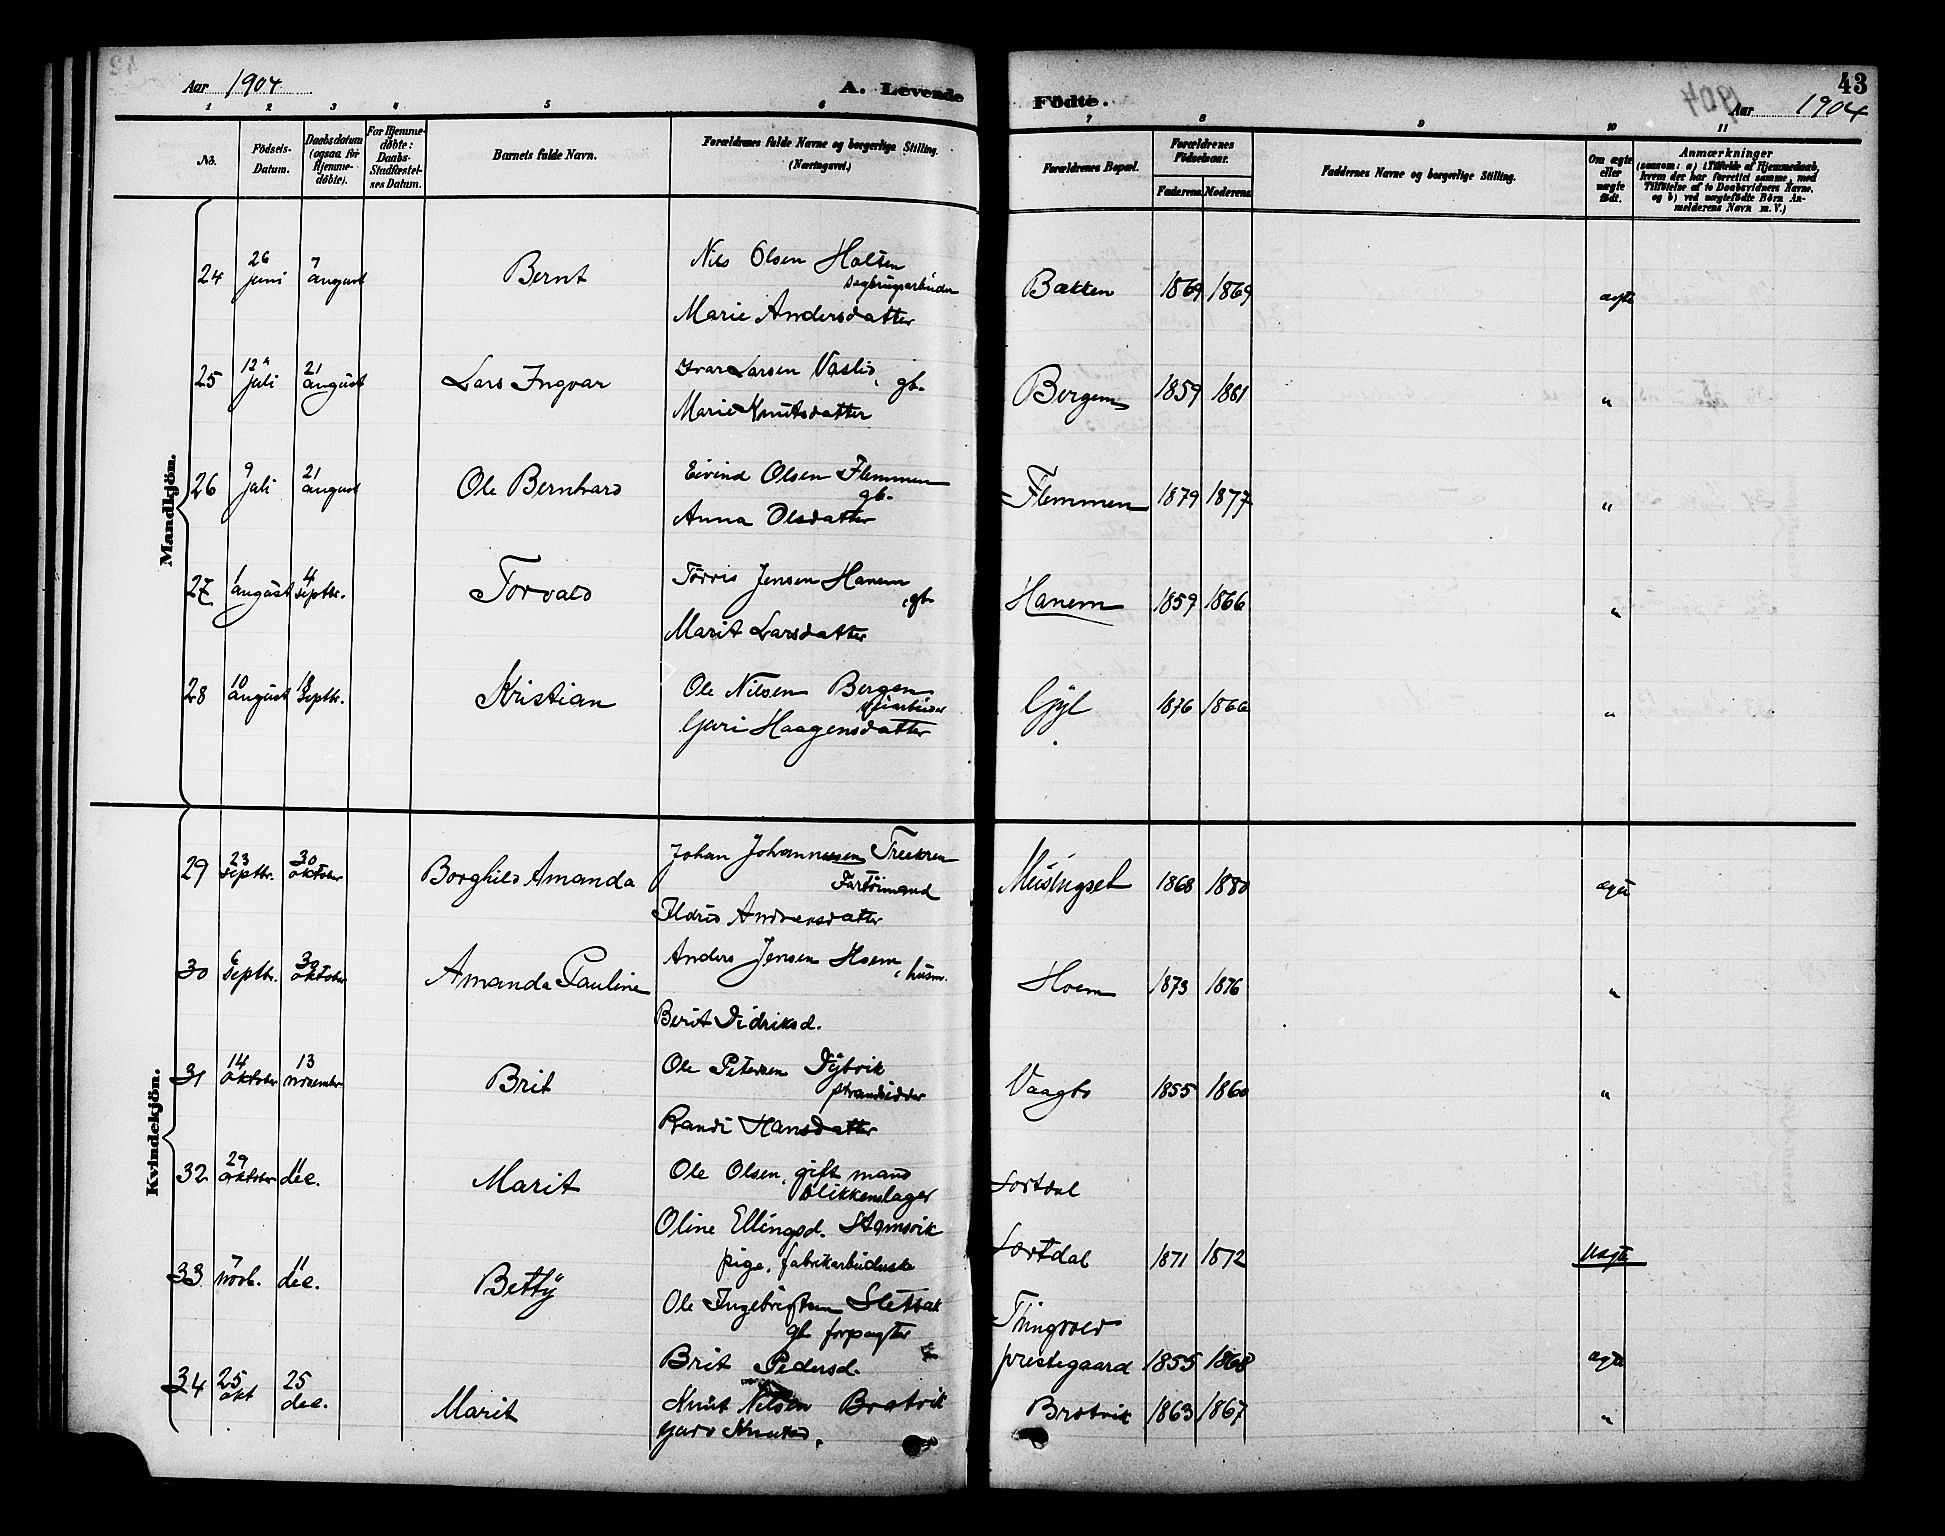 Aar 1904
A. Levende Födte.
43
Aar 1904
1 2 3 4 5 6 7 8 9 10 11
No.
Födsels-
Datum.
Daabsdatum
(ogsaa for
Hjemme-
döbte).
For Hjemme-
döbte:
Daabs-
Stadfæstel-
ses Datum.
Barnets fulde Navn.
Forældrenes fulde Navne og borgerlige Stilling.
(Næringsvei.)
Forældrenes Bopæl.
Forældrenes
Födselsaar.
Faderens. Moderens.
Faddernes Navne og borgerlige Stilling.
Om ægte
eller
uægte
født.
Anmærkninger
(saasom: a) i Tilfælde af Hjemmedaab,
hvem der har forrettet samme, med
Tilföielse af to Daabsvidners Navne.
og b) ved uægtefödte Börn An-
melderens Navn m. V.)
Mandkjön.
24 26 juni 7 august Bernt
Nils Olsen Holten
sagbrugsarbeider
Marie Andersdatter
Bækken 1869 1869 ægte
25 12 juli 21 august Lars Ingvar
Ivar Larsen Vaslid, gb.
Marie Knutsdatter
Bergem 1859 1881 "
26 9 juli 21 august Ole Bernhard
Eivind Olsen Flemmen
gb.
Anna Olsdatter
Flemmen 1879 1877 "
27 1 august 4 septbr. Torvald
Torris Jensen Hanem
, gb.
Marit Larsdatter
Hanem 1859 1866 "
28 10 august 18 septbr. Kristian
Ole Nilsen Bergen
Guri Haagensdatter
Gyl 1876 1866 "
Kvindekjön.
29 23 septbr. 30 oktober Borghild Amanda
Johan Johannessen Treekren
Fartöimand
Ildrid Andreasdatter
Meisingset 1868 1880 ægte
30 6 septbr. 30 oktober Amanda Pauline
Anders Jensen Hoem, husm.
Berit Didriksd.
Hoem 1873 1876 "
31 14 oktober 13 november Brit
Ole Petersen Dybvik
strandsidder
Randi Hansdatter
Vaagbö 1855 1860 "
32 29 oktober 11 dec. Marit
Ole Olsen, gift mand
blikkenslager
Oline Ellingsd. Stamsvik
pige, fabrikarbeiderske
Sortdal
Sortdal 1871 1872 uægte
33 7 novb. 11 dec. Betty
Ole Ingebrigtsen Sletbak
gb. forpagter
Brit Pedersd.
Thingvold
prestegaard 1855 1868 ægte
34 25 okt 25 dec. Marit
Knut Nilsen Bratvik
Guro Knutsd.
Bratvik 1863 1867 "